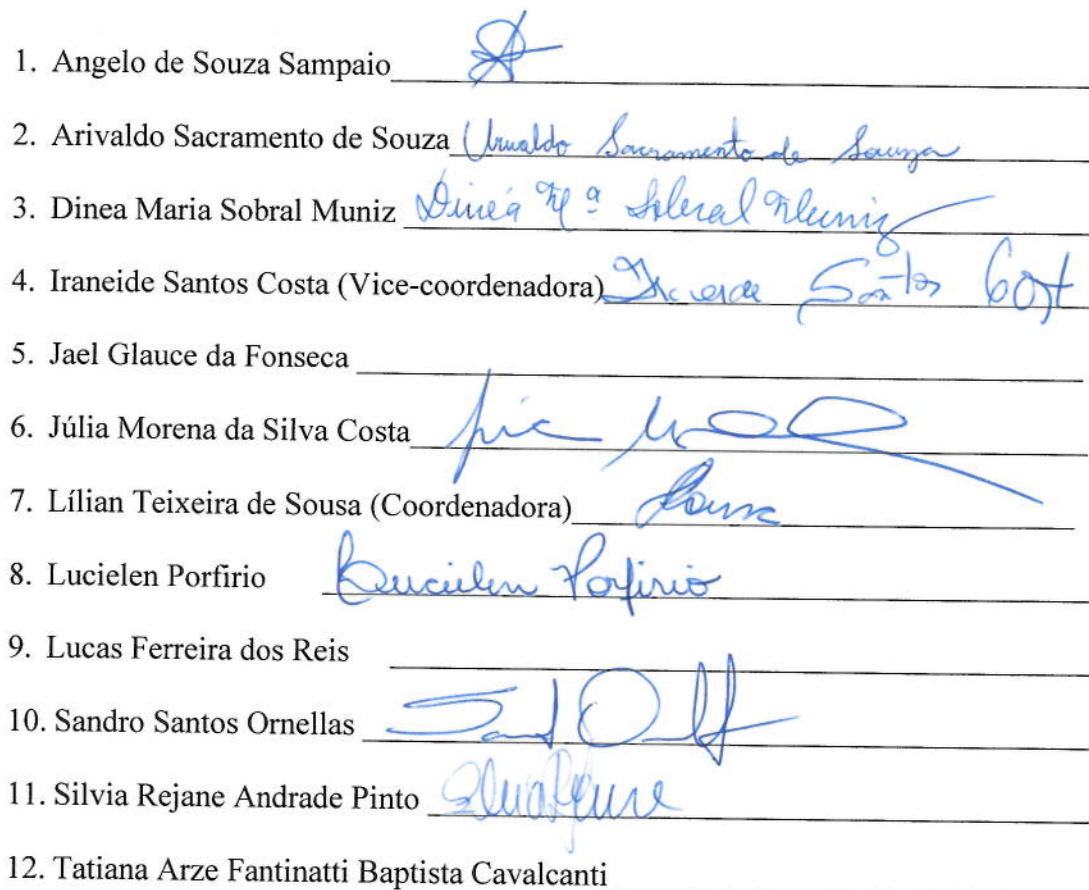 1. Angelo de Souza Sampaio
2. Arivaldo Sacramento de Souza Arivaldo Sacramento de Souza
3. Dinea Maria Sobral Muniz Dinéa Mª Sobral Muniz
4. Iraneide Santos Costa (Vice-coordenadora) Santos Cost
5. Jael Glauce da Fonseca
6. Júlia Morena da Silva Costa
7. Lílian Teixeira de Sousa (Coordenadora) Sousa
8. Lucielen Porfirio Lucielen Porfirio
9. Lucas Ferreira dos Reis
10. Sandro Santos Ornellas
11. Silvia Rejane Andrade Pinto
12. Tatiana Arze Fantinatti Baptista Cavalcanti